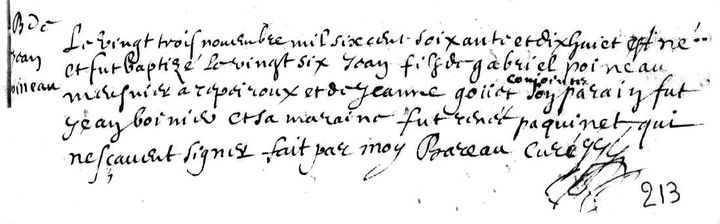 B de
Jean
poineau
Le vingt trois novembre mil six cent soixante et dix huict est né
et fut baptizé le vingt six Jean filz de gabriel poineau
meusnier a et de Jeanne gouet conjointz son parain fut
Jean boinier et sa maraine fut renee paquinet qui
ne sçavent signer fait par moy Bareau curé
213